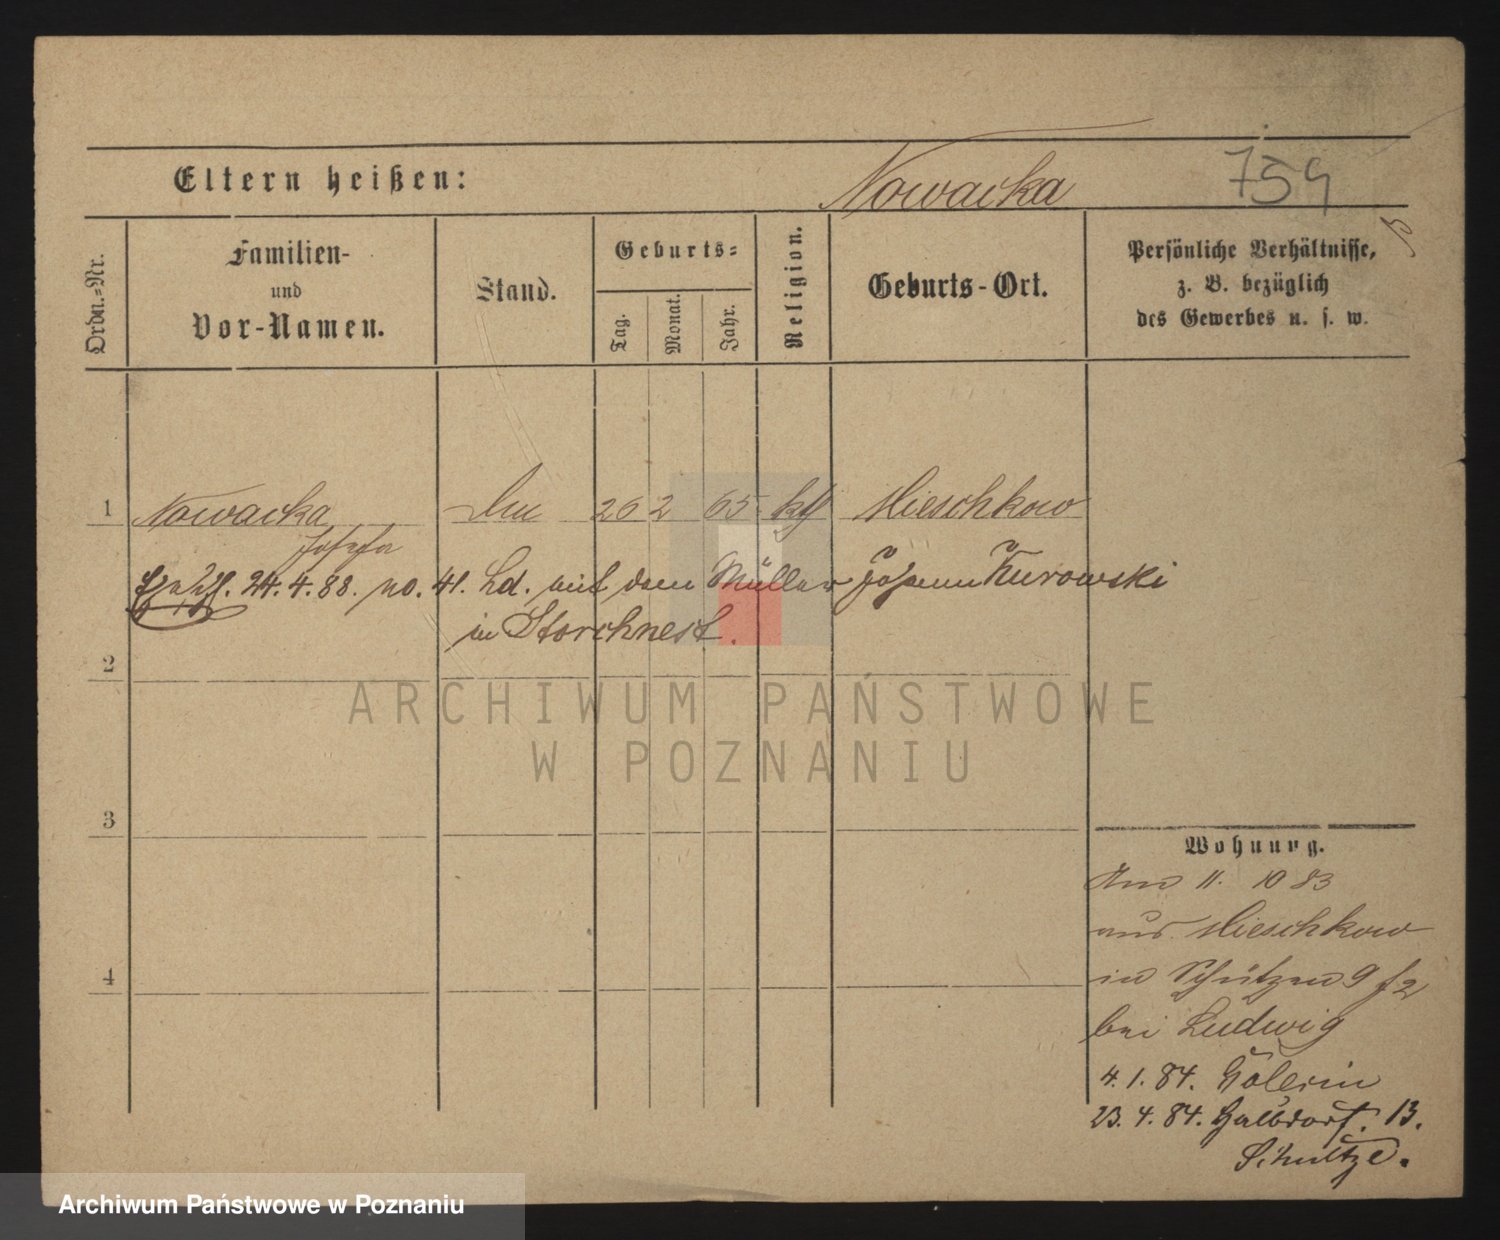 Eltern heißen:
Nowacka
759
Ordn.-Nr.
Familien-
und
Vor-Namen.
Stand.
Geburts-
Tag.
Monat.
Jahr.
Religion.
Geburts-Ort.
Persönliche Verhältnisse,
z. B. bezüglich
des Gewerbes u. s. w.
1
Nowacka
26 2 65 kth
Mieschkow
Josefa
24.4.88. no. 41. Ld. mit dem Müller Johann Kurowski
in Storchnest.
2
ARCHIWUM PAŃSTWOWE
W POZNANIU
3
Wohnung.
11. 10 83
aus Mieschkow
4
in Schützen 9
bei Ludwig
4.1.84.
23.4.84. Halbdorf. 13.
Schultze.
Archiwum Państwowe w Poznaniu